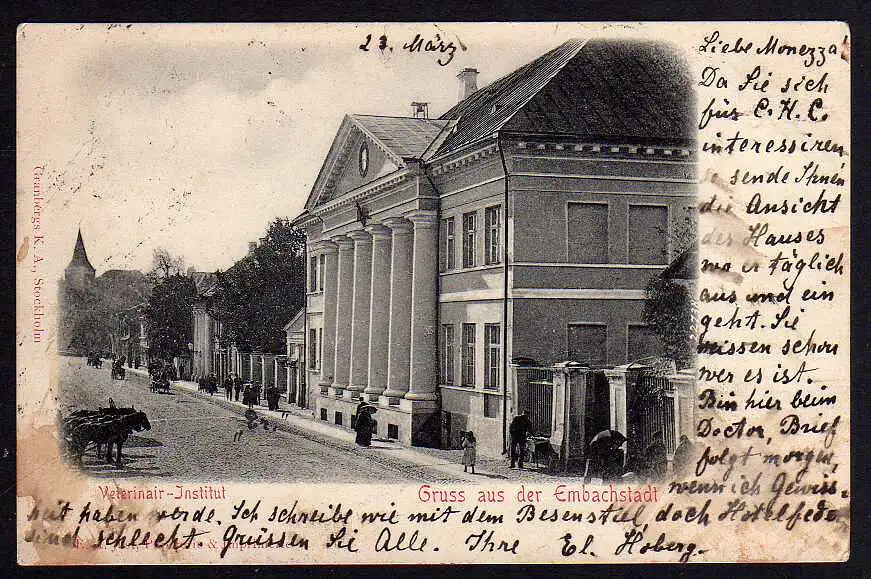 23. März
Liebe Monezza!
Da Sie sich
für C.H.C.
interessiren
so sende Ihnen
die Ansicht
des Hauses
wo er täglich
aus und ein
geht. Sie
wissen schon
wer es ist.
Bin hier beim
Doctor, Brief
folgt morgen,
wenn ich Gewiss-
heit haben werde. Ich schreibe wie mit dem Besenstiel, doch Hotelfedern
sind schlecht. Grüssen Sie Alle. Ihre El. Hoberg.
Veterinair-Institut
Gruss aus der Embachstadt
Granbergs K. A., Stockholm